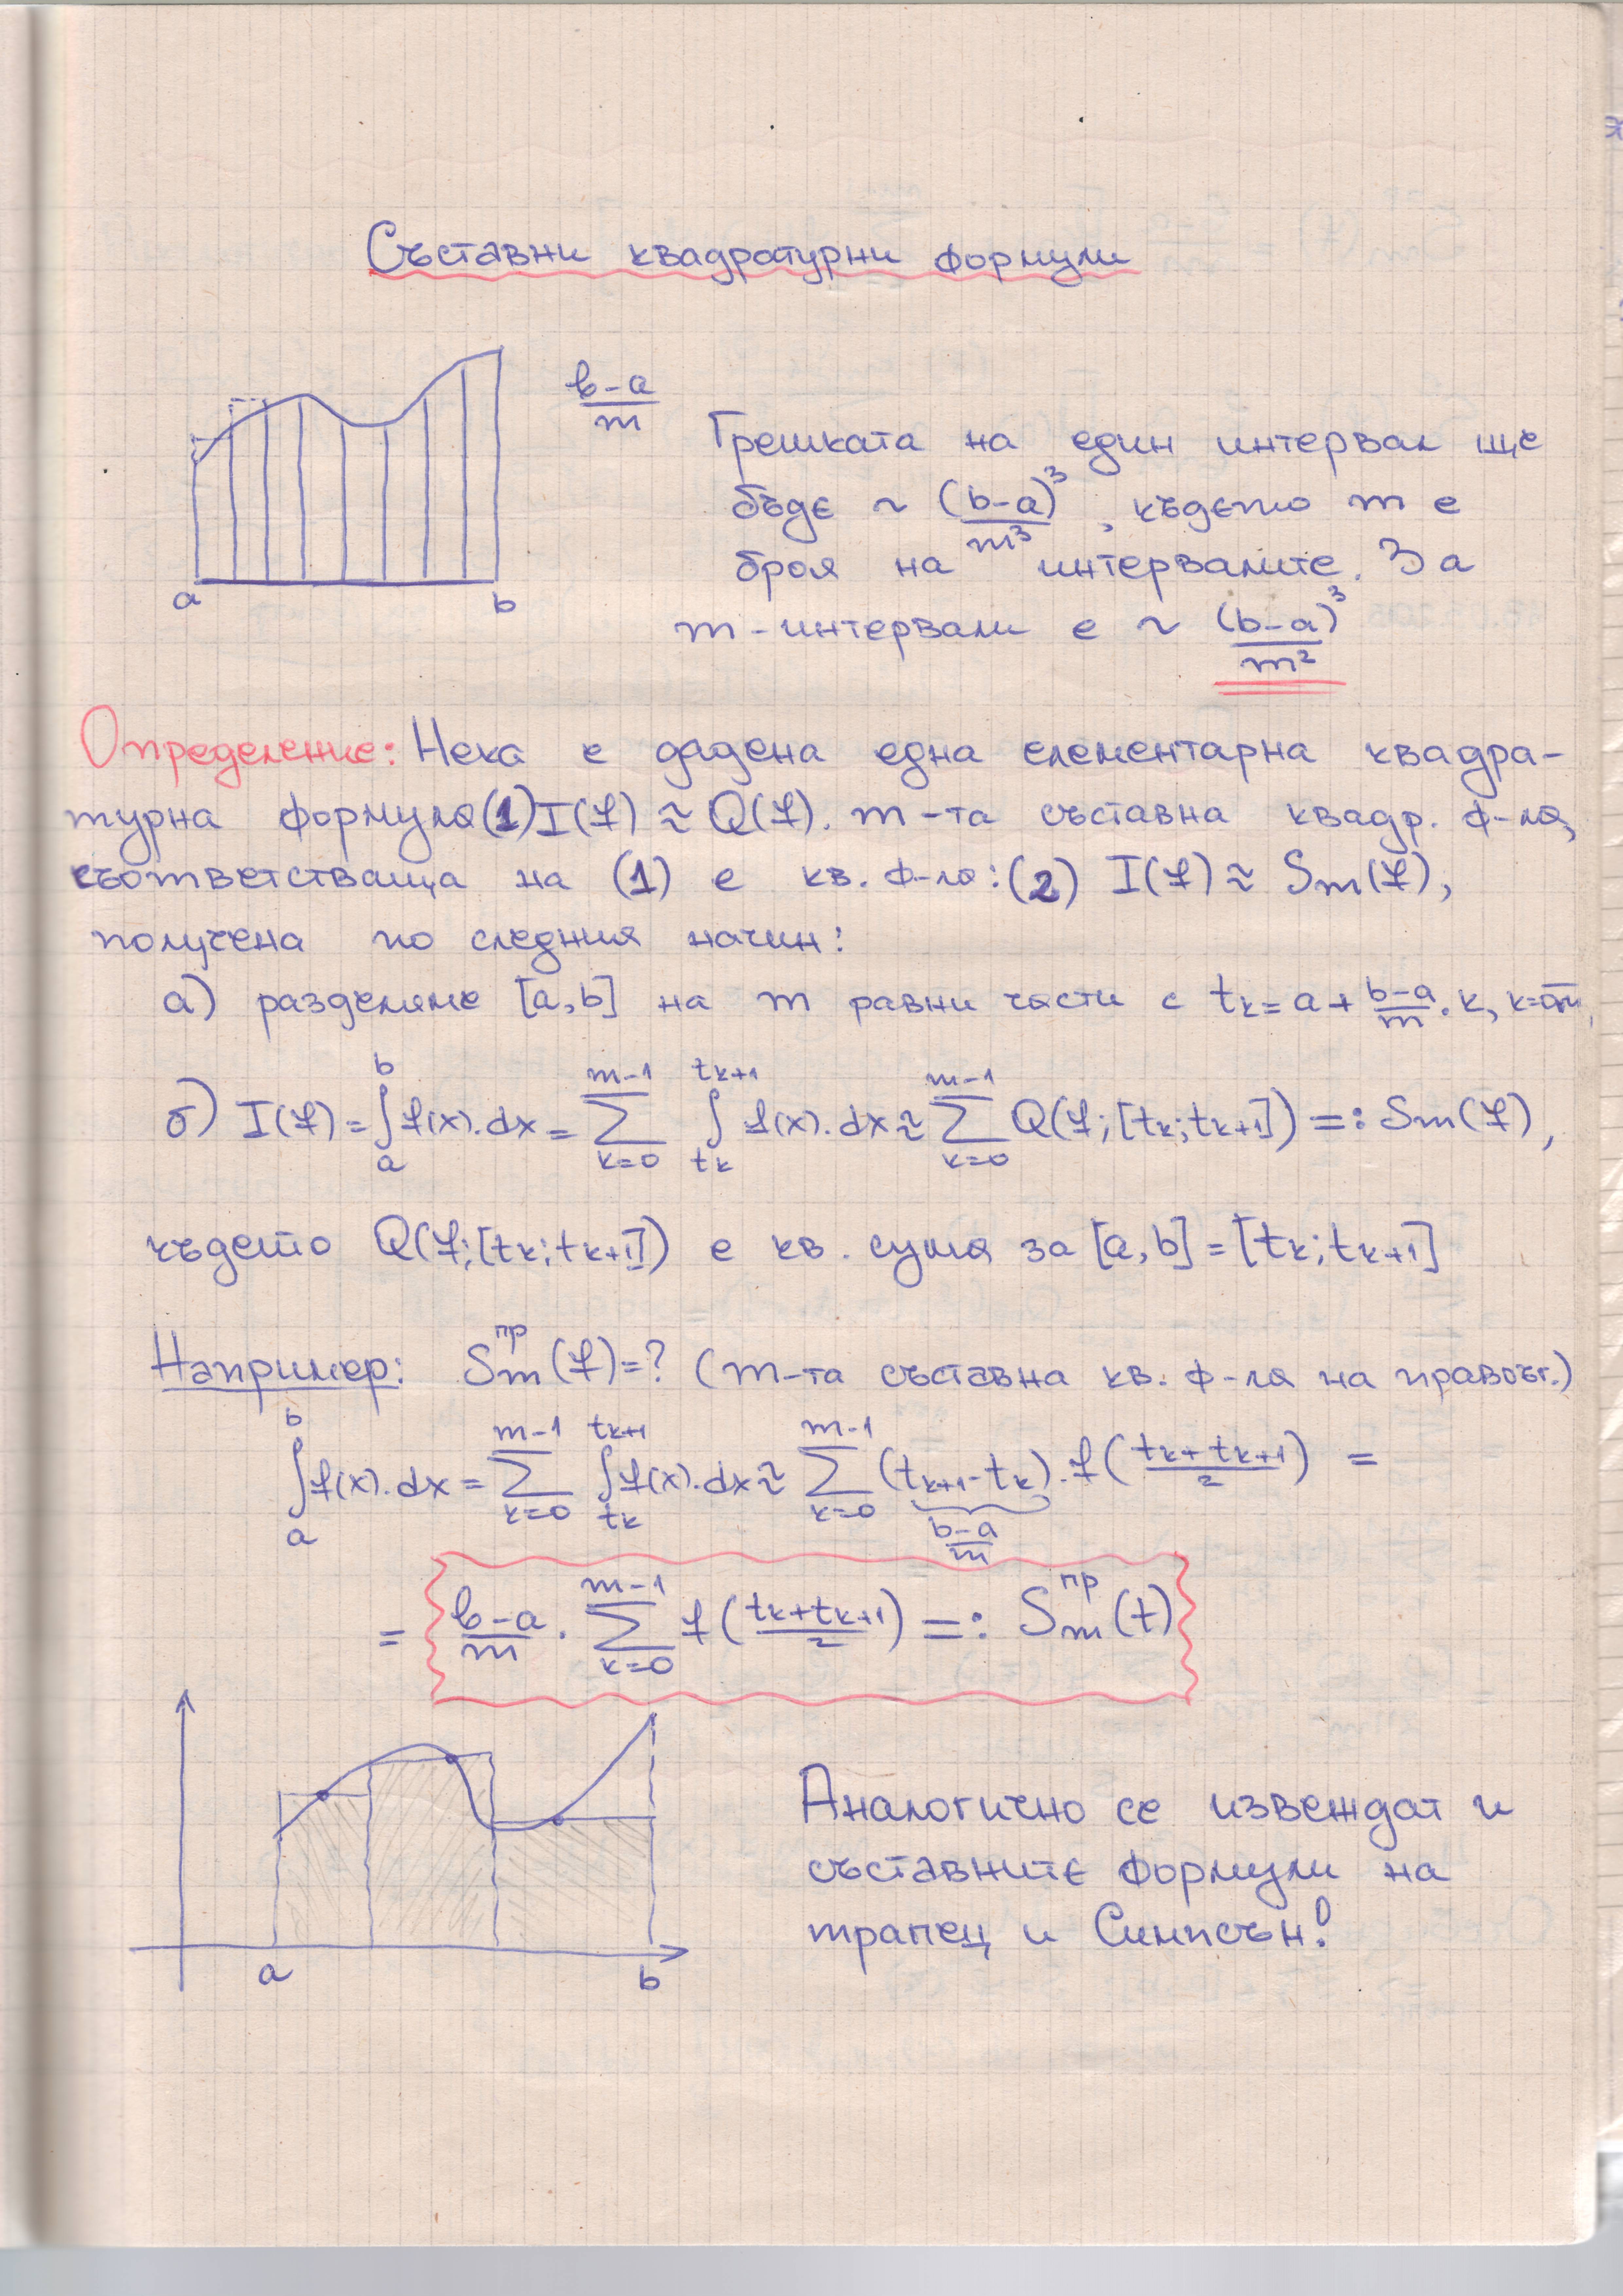 Съставни квадратурни формули
b-a/m
Грешката на един интервал ще
бъде ~ (b-a)³/m³, където m е
броя на интервалите. За
m-интервали е ~ (b-a)³/m²
a b
Определение: Нека е дадена една елементарна квадра-
турна формула (1) I(f) ≈ Q(f). m-та съставна квадр. ф-ла,
съответстваща на (1) е кв. ф-ла: (2) I(f) ≈ Sm(f),
получена по следния начин:
а) разделяме [a,b] на m равни части с tk = a + b-a/m . k, k=0,m,
б) I(f) = ∫_a^b f(x).dx = ∑_{k=0}^{m-1} ∫_{tk}^{tk+1} f(x).dx ≈ ∑_{k=0}^{m-1} Q(f;[tk;tk+1]) =: Sm(f),
където Q(f;[tk;tk+1]) е кв. сума за [a,b] = [tk;tk+1]
Например: Sm^пр(f)=? (m-та съставна кв. ф-ла на правоъг.)
∫_a^b f(x).dx = ∑_{k=0}^{m-1} ∫_{tk}^{tk+1} f(x).dx ≈ ∑_{k=0}^{m-1} (tk+1-tk).f(tk+tk+1/2) =
b-a/m
= b-a/m . ∑_{k=0}^{m-1} f(tk+tk+1/2) =: Sm^пр(t)
Аналогично се извеждат и
съставните формули на
трапец и Симпсън!
a b